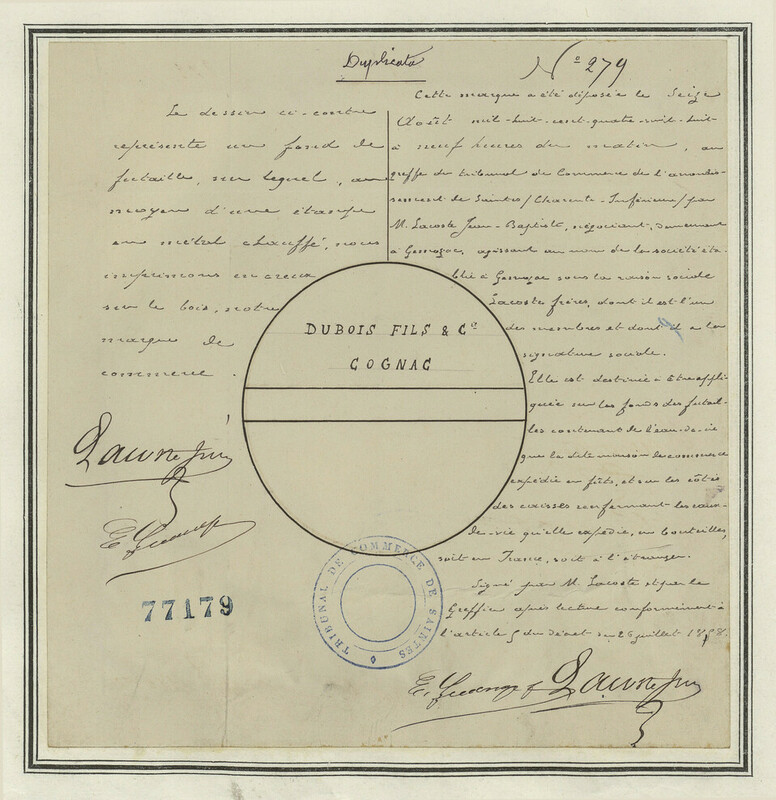 Duplicata
N° 279
Le dessin ci-contre
représente un fond de
futaille, sur lequel, au
moyen d'une étampe
en métal chauffé, nous
imprimons en creux
sur le bois, notre
marque de
commerce.
Cette marque a été déposée le Seize
Août mil-huit-cent-quatre-vingt-huit
à neuf heures du matin, au
greffe du tribunal de Commerce de l'arrondis-
sement de Saintes / Charente-Inférieure / par
M. Lacoste Jean-Baptiste, négociant, demeurant
à Gemozac, agissant au nom de la société éta-
blie à Gemozac sous la raison sociale
Lacoste frères, dont il est l'un
des membres et dont il a la
signature sociale.
Elle est destinée à être appli-
quée sur les fonds des futail-
les contenant de l'eau-de-vie
que la dite maison de commerce
expédie en fûts, et sur les côtés
des caisses renfermant les eaux-
de-vie qu'elle expédie, en bouteilles,
soit en France, soit à l'étranger.
Signé par M. Lacoste et par le
Greffier après lecture conformément à
l'article 5 du décret du 26 juillet 1858.
DUBOIS FILS & Co
COGNAC
77179
TRIBUNAL DE COMMERCE DE SAINTES